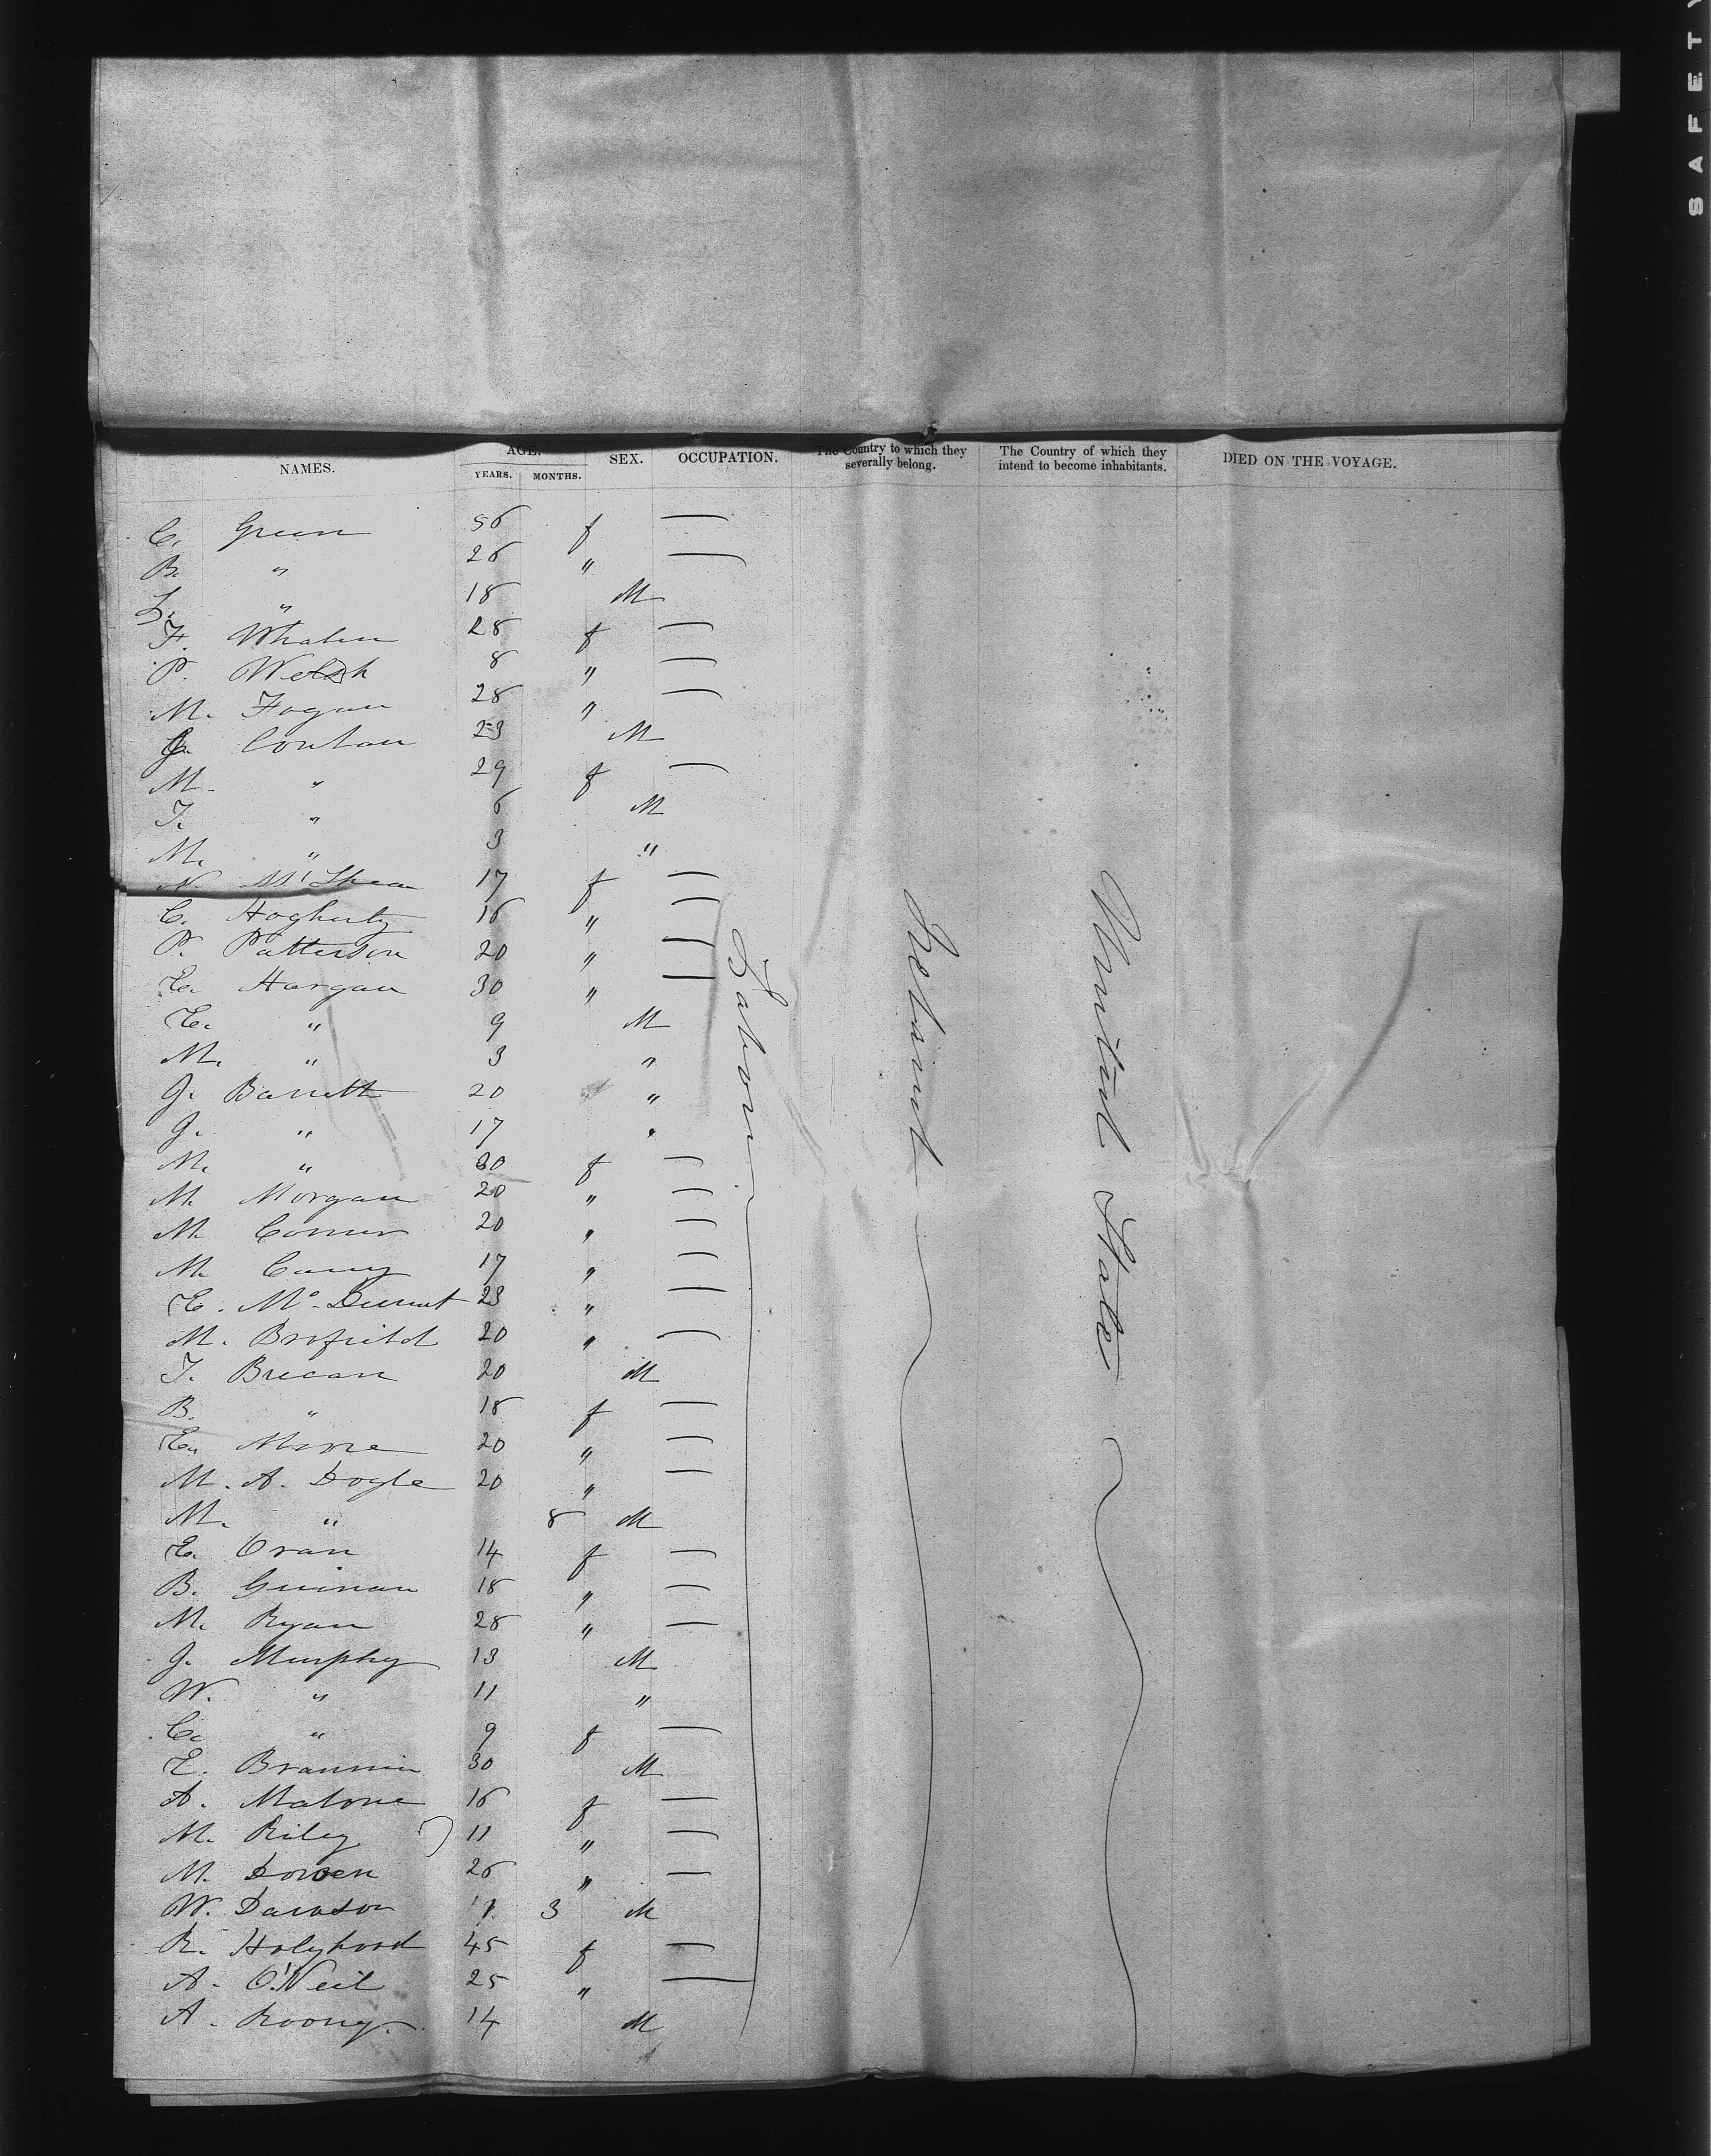 SAFETY
NAMES. AGE. YEARS. MONTHS. SEX. OCCUPATION. The Country to which they severally belong. The Country of which they intend to become inhabitants. DIED ON THE VOYAGE.
C. Green 56 f —
B. " 26 " —
L. " 18 M
F. Whalen 28 f —
P. Welsh 8 " —
M. Fagan 28 " —
J. Conlan 23 M
M. " 29 f —
T. " 6 M
M. " 3 "
N. McShean 17 f —
C. Hogherty 16 " —
P. Patterson 20 " —
E. Horgan 30 " —
E. " 9 M
M. " 3 "
J. Barrett 20 "
J. " 17 "
M. " 30 f —
M. Morgan 20 " —
M. Conner 20 " —
M. 17 " —
E. McDermot 23 " —
M. Brofield 20 " —
T. Brecan 20 M
B. " 18 f —
E. 20 " —
M. A. Dogle 20 "
M. " 8 M
E. Oran 14 f —
B. Guinan 18 " —
M. Ryan 28 " —
J. Murphy 13 M
W. " 11 "
C. " 9 f —
E. Brannin 30 M
A. Malone 16 f —
M. Riley 11 " —
M. Dowen 26 " —
W. Dawson 3 M
R. Holyhood 45 f —
A. O'Neil 25 " —
A. Roony. 14 M
Labour
Ireland
United States